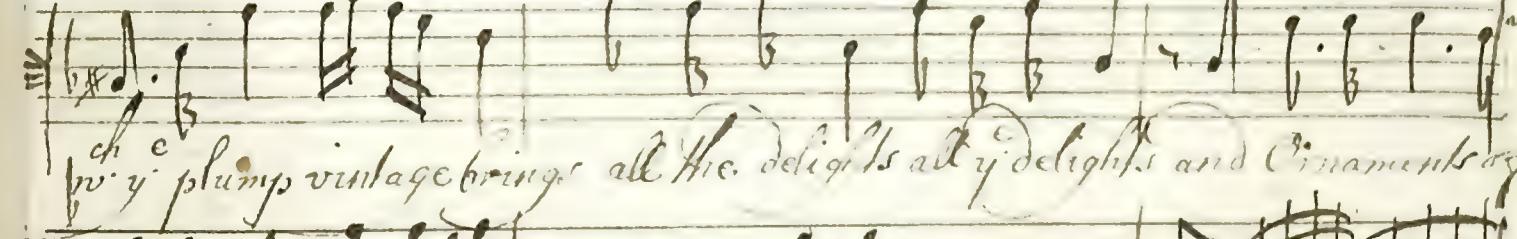 wch ye plump vintage brings all the delights all ye delights and Ornaments